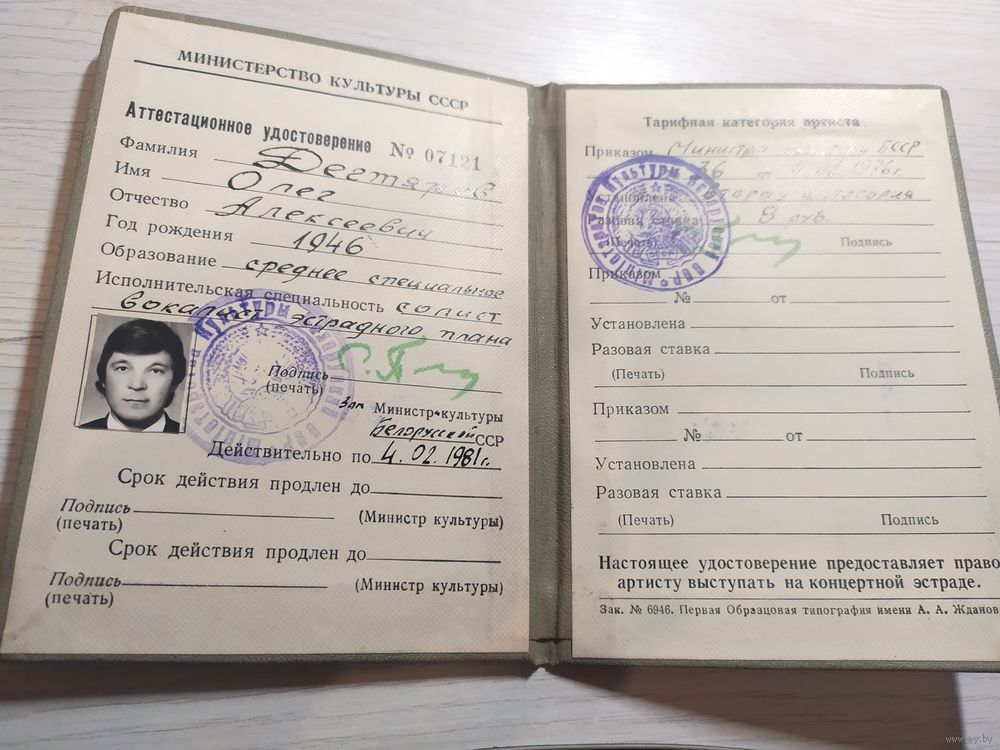 МИНИСТЕРСТВО КУЛЬТУРЫ СССР
Аттестационное удостоверение № 07121
Фамилия Дегтярев
Имя Олег
Отчество Алексеевич
Год рождения 1946
Образование среднее специальное
Исполнительская специальность солист
вокалист эстрадного плана
Подпись
(печать)
Зам Министр культуры
Белорусской ССР
Действительно по 4.02.1981г.
Срок действия продлен до
Подпись
(печать) (Министр культуры)
Срок действия продлен до
Подпись (Министр культуры)
(печать)
Тарифная категория артиста
Приказом Министра культуры БССР
36 от 1976г
Установлена вторая категория
Разовая ставка 8 руб.
(Печать) Подпись
Приказом
№ от
Установлена
Разовая ставка
(Печать) Подпись
Приказом
№ от
Установлена
Разовая ставка
(Печать) Подпись
Настоящее удостоверение предоставляет право
артисту выступать на концертной эстраде.
Зак. № 6946. Первая Образцовая типография имени А. А. Жданов
www.ay.by